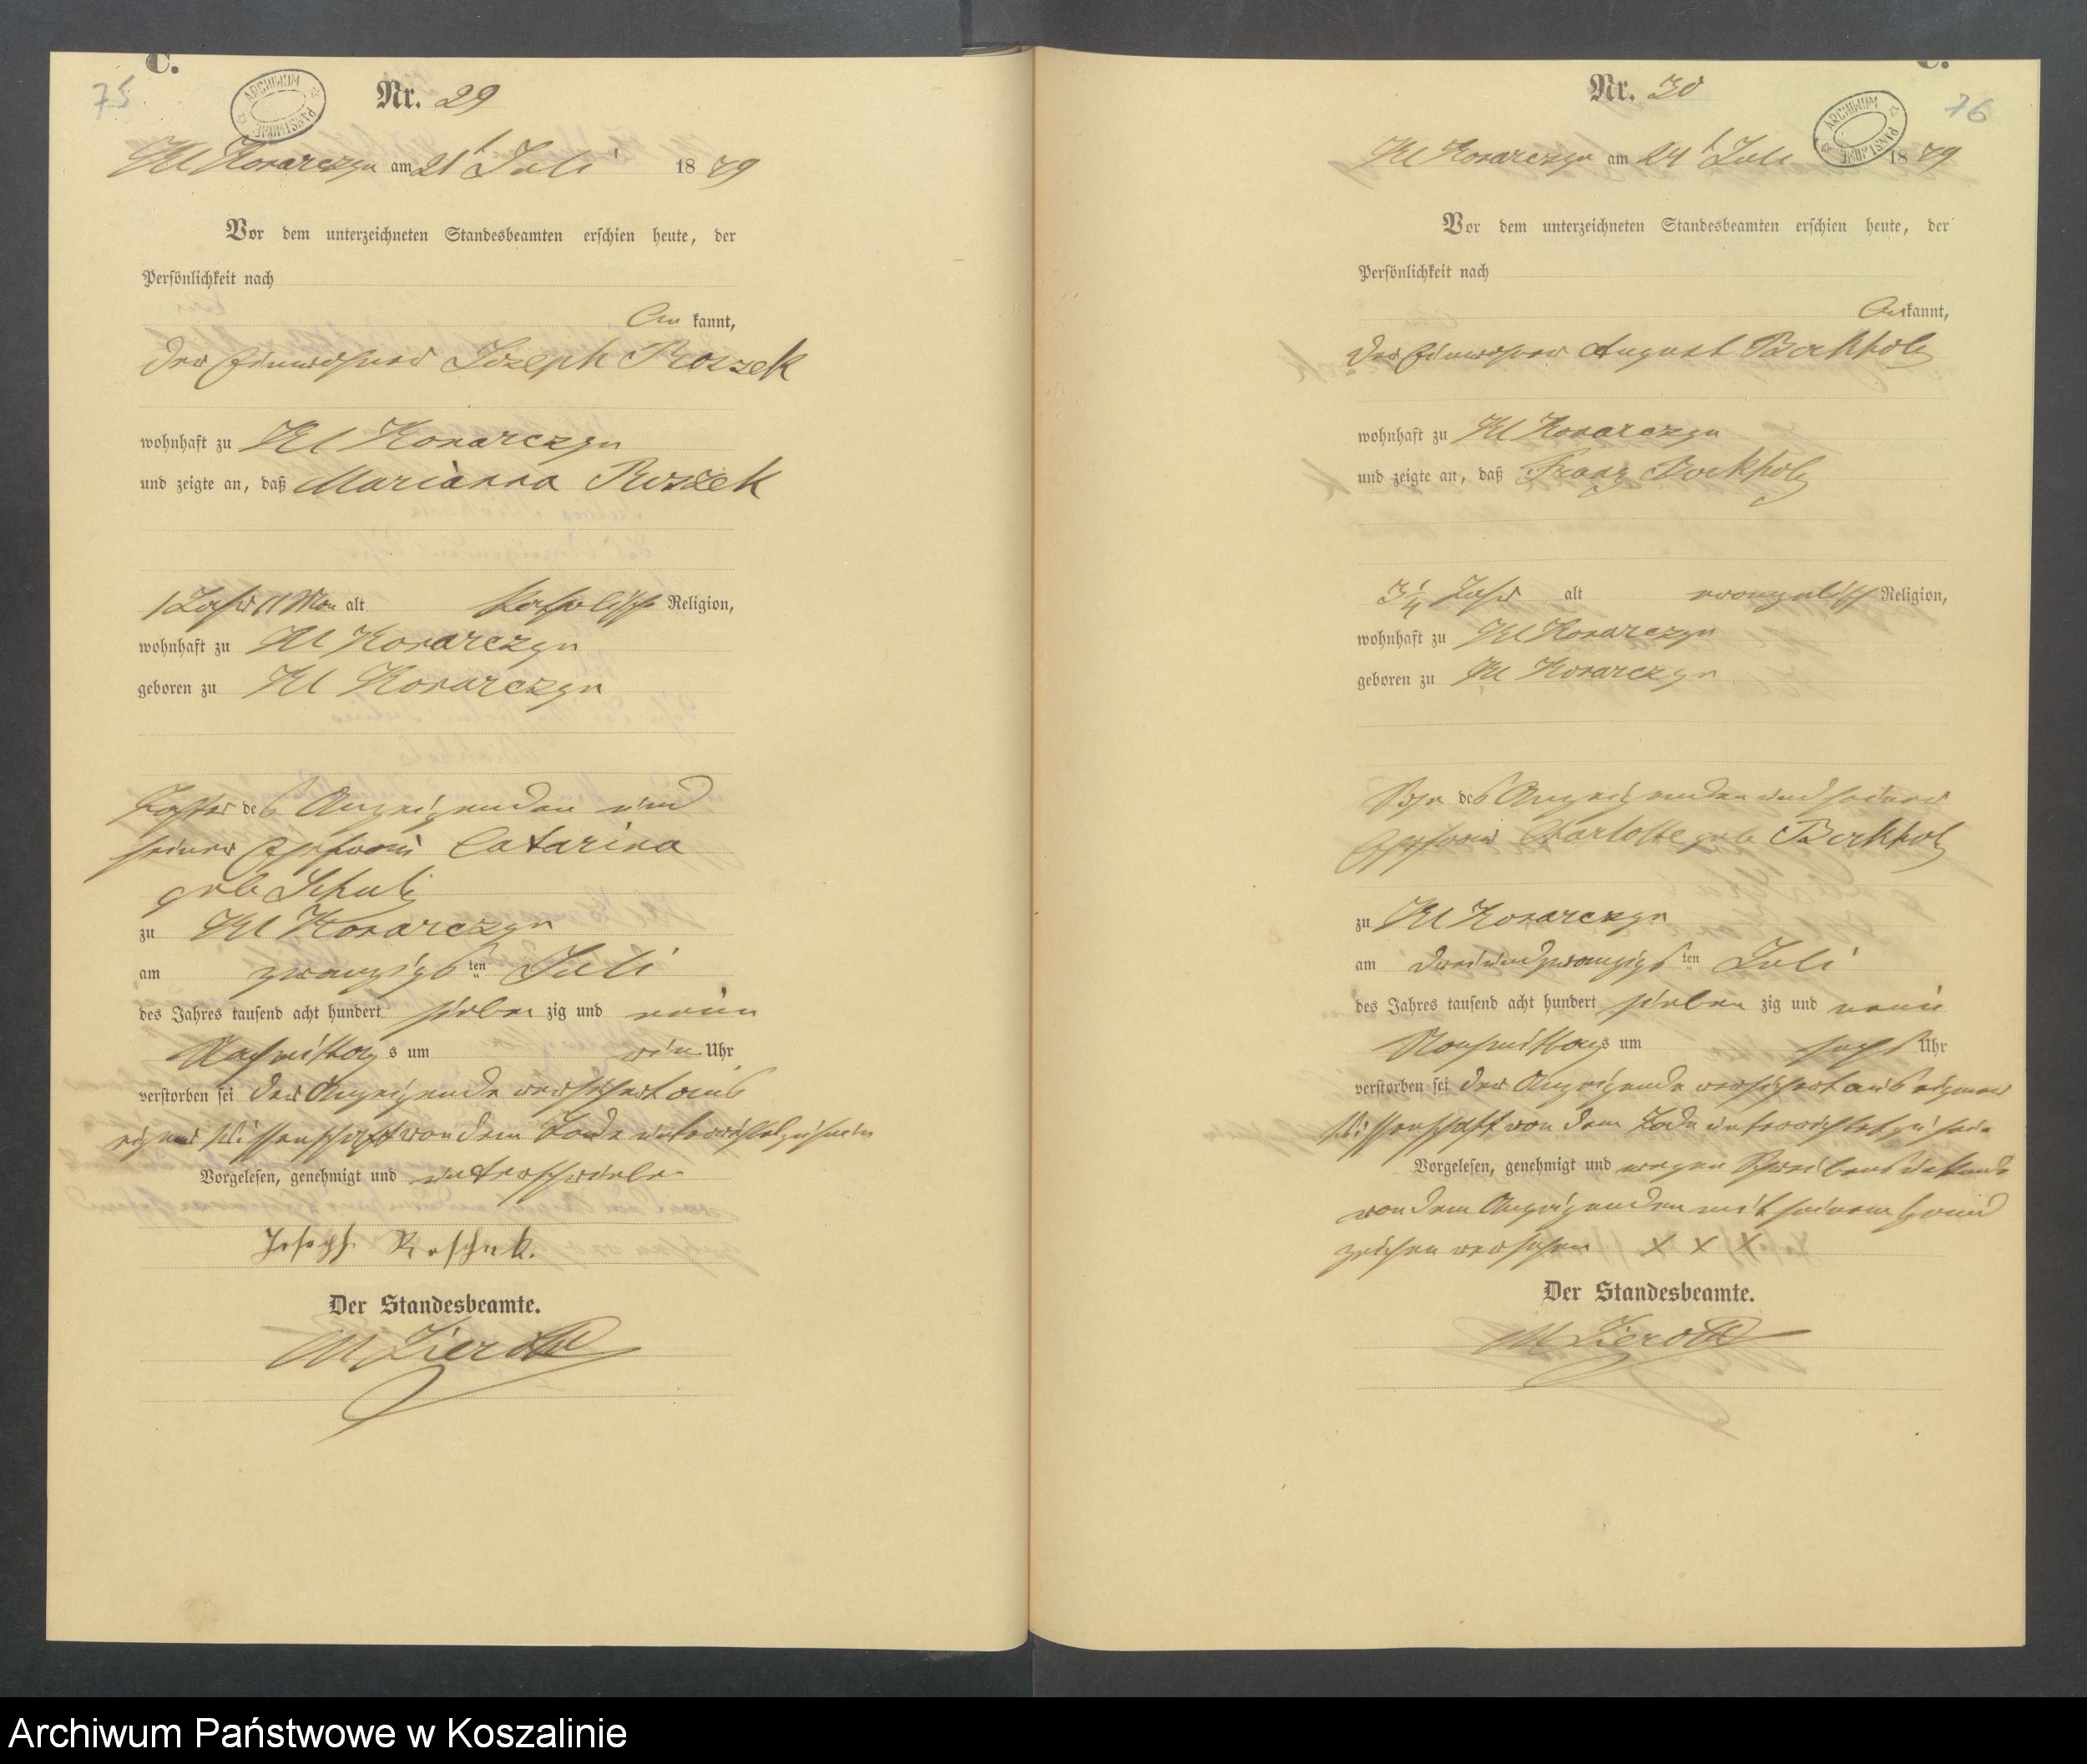 C.
75
ARCHIWUM PAŃSTWOWE
Nr. 29
Kl Konarczyn am 21t Juli 1879
Vor dem unterzeichneten Standesbeamten erschien heute, der
Persönlichkeit nach
be kannt,
der Einwohner Iozeph Roszek
wohnhaft zu Kl Konarczyn
und zeigte an, daß Marianna Roszek
1 Jahr 11 Mon alt katholisch Religion,
wohnhaft zu Kl Konarczyn
geboren zu Kl Konarczyn
Tochter des Anzeigenden und
seiner Ehefrau Catarina
geb Schulz
zu Kl Konarczyn
am zwanzigs ten Juli
des Jahres tausend acht hundert sieben zig und neun
Nachmittag s um ein Uhr
verstorben sei der Anzeigende versichert aus
eigener Wissenschaft von dem Tode unterrichtet zu sein
Vorgelesen, genehmigt und unterschrieben
Joseph Roschek.
Der Standesbeamte.
M Zieroth
C.
76
ARCHIWUM PAŃSTWOWE
Nr. 30
Kl Konarczyn am 24t Juli 1879
Vor dem unterzeichneten Standesbeamten erschien heute, der
Persönlichkeit nach
be kannt,
der Einwohner August Berkholz
wohnhaft zu Kl Konarczyn
und zeigte an, daß Franz Berkholz
3 1/4 Jahr alt evangelisch Religion,
wohnhaft zu Kl Konarczyn
geboren zu Kl Konarczyn
Sohn des Anzeigenden und seiner
Ehefrau Charlotte geb Berkholz
zu Kl Konarczyn
am dreiundzwanzigs ten Juli
des Jahres tausend acht hundert sieben zig und neun
Nachmittag s um sechs Uhr
verstorben sei der Anzeigende versichert aus eigener
Wissenschaft von dem Tode unterrichtet zu sein
Vorgelesen, genehmigt und wegen Schreibensunkunde
von dem Anzeigenden mit seinem Hand
zeichen versehen X X X
Der Standesbeamte.
M Zieroth
Archiwum Państwowe w Koszalinie